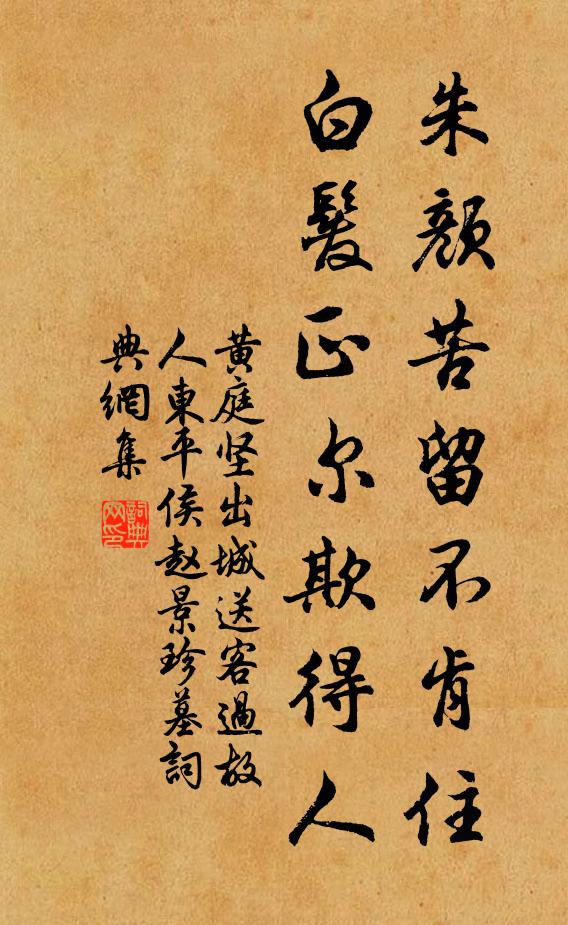 朱顏苦留不肯住
白髮正尔欺得人
黄庭坚出城送客過故
人東平侯赵景珍墓詞
典網集
詞典
网印